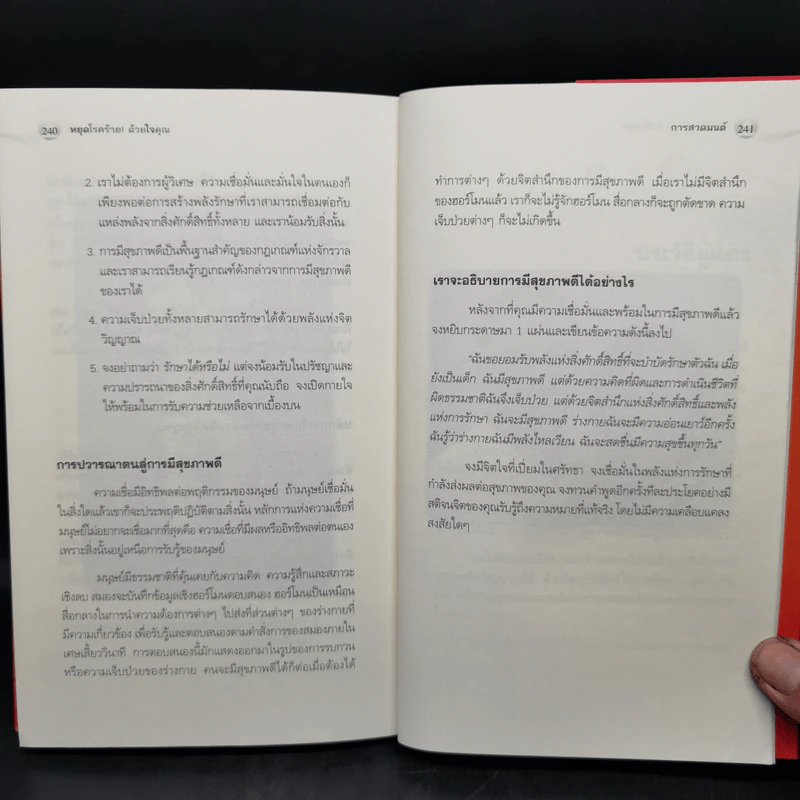 240 หยุดโรคร้าย! ด้วยใจคุณ
2. เราไม่ต้องการผู้วิเศษ ความเชื่อมั่นและมั่นใจในตนเองก็
เพียงพอต่อการสร้างพลังรักษาที่เราสามารถเชื่อมต่อกับ
แหล่งพลังจากสิ่งศักดิ์สิทธิ์ทั้งหลาย และเราน้อมรับสิ่งนั้น
3. การมีสุขภาพดีเป็นพื้นฐานสำคัญของกฎเกณฑ์แห่งจักรวาล
และเราสามารถเรียนรู้กฎเกณฑ์ดังกล่าวจากการมีสุขภาพดี
ของเราได้
4. ความเจ็บป่วยทั้งหลายสามารถรักษาได้ด้วยพลังแห่งจิต
วิญญาณ
5. จงอย่าถามว่า รักษาได้หรือไม่ แต่จงน้อมรับในปรัชญาและ
ความปรารถนาของสิ่งศักดิ์สิทธิ์ที่คุณนับถือ จงเปิดกายใจ
ให้พร้อมในการรับความช่วยเหลือจากเบื้องบน
การปวารณาตนสู่การมีสุขภาพดี
ความเชื่อมีอิทธิพลต่อพฤติกรรมของมนุษย์ ถ้ามนุษย์เชื่อมั่น
ในสิ่งใดแล้วเขาก็จะประพฤติปฏิบัติตามสิ่งนั้น หลักการแห่งความเชื่อที่
มนุษย์ไม่อยากจะเชื่อมากที่สุดคือ ความเชื่อที่มีผลหรืออิทธิพลต่อตนเอง
เพราะสิ่งนั้นอยู่เหนือการรับรู้ของมนุษย์
มนุษย์มีธรรมชาติที่คุ้นเคยกับความคิด ความรู้สึกและสภาวะ
เชิงลบ สมองจะบันทึกข้อมูลเชิงฮอร์โมนตอบสนอง ฮอร์โมนเป็นเหมือน
สื่อกลางในการนำความต้องการต่างๆ ไปส่งที่ส่วนต่างๆ ของร่างกายที่
มีความเกี่ยวข้อง เพื่อรับรู้และตอบสนองตามคำสั่งการของสมองภายใน
เศษเสี้ยววินาที การตอบสนองนี้มักแสดงออกมาในรูปของการรบกวน
หรือความเจ็บป่วยของร่างกาย คนจะมีสุขภาพดีได้ก็ต่อเมื่อต้องได้
การสวดมนต์ 241
ทำการต่างๆ ด้วยจิตสำนึกของการมีสุขภาพดี เมื่อเราไม่มีจิตสำนึก
ของฮอร์โมนแล้ว เราก็จะไม่รู้จักฮอร์โมน สื่อกลางก็จะถูกตัดขาด ความ
เจ็บป่วยต่างๆ ก็จะไม่เกิดขึ้น
เราจะอธิบายการมีสุขภาพดีได้อย่างไร
หลังจากที่คุณมีความเชื่อมั่นและพร้อมในการมีสุขภาพดีแล้ว
จงหยิบกระดาษมา 1 แผ่นและเขียนข้อความดังนี้ลงไป
“ฉันขอยอมรับพลังแห่งสิ่งศักดิ์สิทธิ์ที่จะบำบัดรักษาตัวฉัน เมื่อ
ยังเป็นเด็ก ฉันมีสุขภาพดี แต่ด้วยความคิดที่ผิดและการดำเนินชีวิตที่
ผิดธรรมชาติฉันจึงเจ็บป่วย แต่ด้วยจิตสำนึกแห่งสิ่งศักดิ์สิทธิ์และพลัง
แห่งการรักษา ฉันจะมีสุขภาพดี ร่างกายฉันจะมีความอ่อนเยาว์อีกครั้ง
ฉันรู้ว่าร่างกายฉันมีพลังไหลเวียน ฉันจะสดชื่นมีความสุขขึ้นทุกวัน”
จงมีจิตใจที่เปี่ยมในศรัทธา จงเชื่อมั่นในพลังแห่งการรักษาที่
กำลังส่งผลต่อสุขภาพของคุณ จงทวนคำพูดอีกครั้งทีละประโยคอย่างมี
สติจนจิตของคุณรับรู้ถึงความหมายที่แท้จริง โดยไม่มีความเคลือบแคลง
สงสัยใดๆ